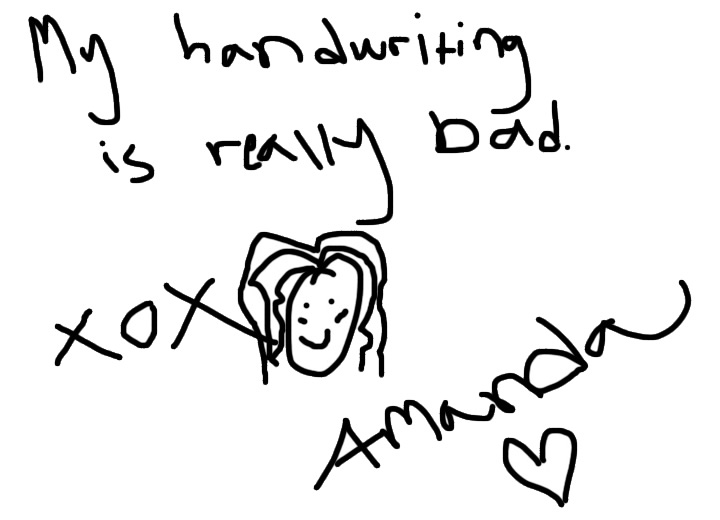 My handwriting
is really bad.
xox
Amanda